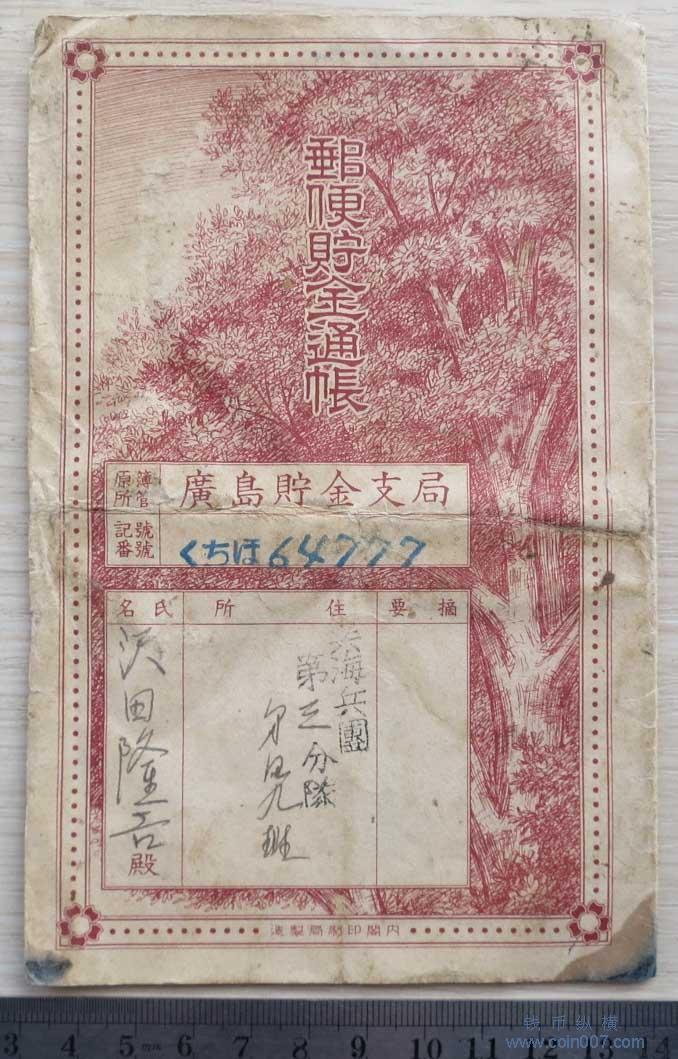 郵便貯金通帳
原簿所管
廣島貯金支局
記號番號
くちほ64777
摘要
住所
氏名
海兵團
第三分隊
沢田隆吉
殿
内閣印刷局製造
3 4 5 m/m 6 7 8 9 10 11 12 13 14
钱币纵横
www.coin007.com